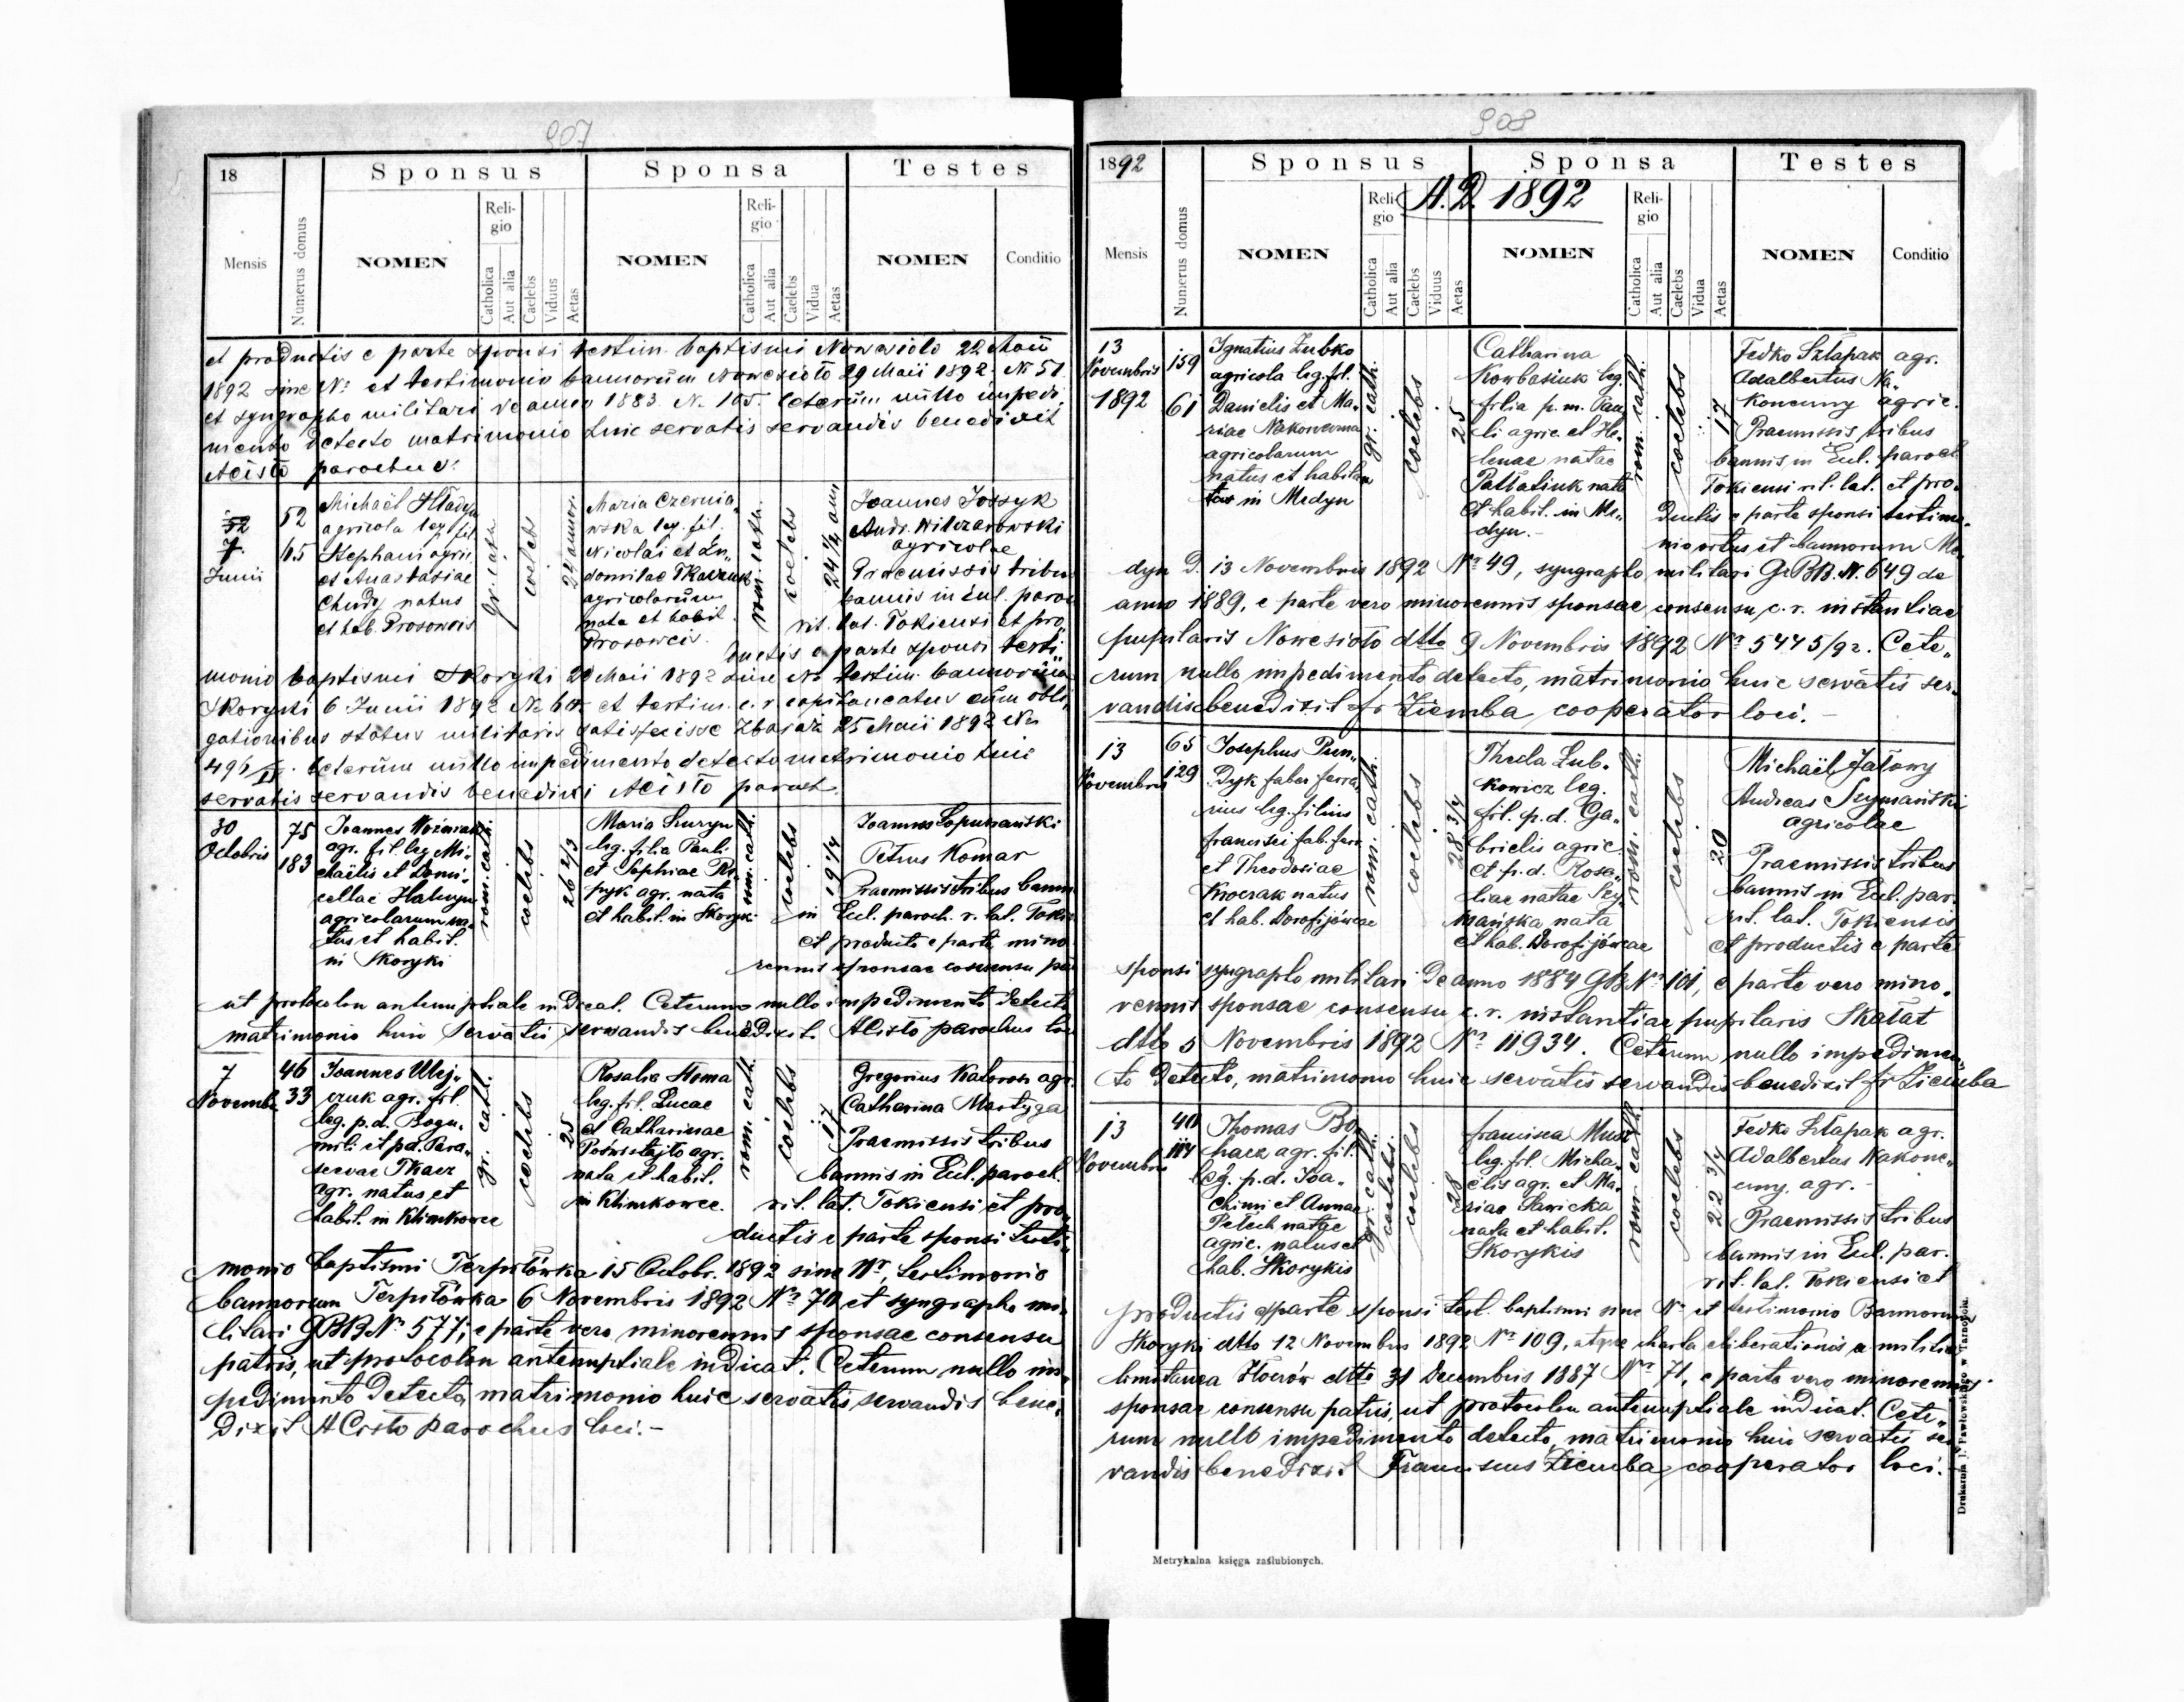 907
18
Sponsus
Sponsa
Testes
Mensis
Numerus domus
NOMEN
Reli-
gio
Catholica
Aut alia
Caelebs
Viduus
Aetas
NOMEN
Reli-
gio
Catholica
Aut alia
Caelebs
Vidua
Aetas
NOMEN
Conditio
et productis e parte sponsi testim. baptismi Nowesiolo 22 Maii
1892 sine Nr. et testimonio bannorum Nowesioło 29 Maii 1892 Nr 51
et syngrapho militari de anno 1883 N. 105. Ceterum nullo impedi,
mento detecto matrimonio huic servatis servandis benedixit
ACisto parochus.
52
7.
Junii
52
65
Michaël Hładyj
agricola leg. fil.
Stephani agric.
et Anastasiae
Chudy natus
et hab. Prosowcis
gr. cath.
coelebs
24 annor.
Maria Czernia,,
wska leg. fil.
Nicolai et Do,,
domilae Tkaczuk
agricolarum
nata et habit.
Prosowcis.
rom. cath.
coelebs
24 1/2 ann
Joannes Jossyk
Andr. Wilczarowski
agricolae
Praemissis tribus
bannis in Ecl. paroc
rit. lat. Tokiensi et pro,,
ductis e parte sponsi testi,,
monio baptismi Skoryki 29 Maii 1892 sine Nr testim. bannorum
Skoryki 6 Junii 1892 N. 64 et testim. c. r. capitaneatus eum obli,
gationibus status militaris satisfecisse Zbaraż 25 Maii 1892 Nr.
496/II. Ceterum nullo impedimento detecto matrimonio huic
servatis servandis benedixi ACisto paroch.
30
Octobris
75
183
Joannes Woźniak
agr. fil. leg. Mi,
chaëlis et Domi,
cellae Haluzyn
agricolarum na,
tus et habit.
in Skoryki
rom. cath.
coelebs
26 2/3
Maria Huryn
leg. filia Pauli
et Sophiae Pi,
pryk agr. nata
et habit. in Skoryki
rom. cath.
coelebs
19 1/4
Joannes Łopuszański
Petrus Komar
Praemissis tribus bann
in Ecl. paroch. r. lat. Toki
et producto e parte mino
rennis sponsae consensu pa
ut protocolon antenuptiale indicat. Ceterum nullo impedimento detecto
matrimonio huic servatis servandis benedixit ACisto parochus loci
7
Novembr.
46
33
Joannes Olij,,
czuk agr. fil.
leg. p.d. Bogu,
mili et p.d. Para,
scevae Tkacz
agr. natus et
habit. in Klimkowce
gr. cath.
coelebs
25
Rosalia Homa
leg. fil. Lucae
et Catharinae
Poświstajło agr.
nata et habit.
in Klimkowce.
rom. cath.
coelebs
17
Gregorius Katoron agr.
Catharina Martyga
Praemissis tribus
bannis in Ecl. paroch.
rit. lat. Tokiensi et pro,
ductis e parte sponsi testi,,
monio baptismi Terpiłówka 15 Octobr. 1892 sine Nr, testimonio
bannorum Terpiłówka 6 Novembris 1892 Nr 70 et syngrapho mi,
litari GBB Nr 577, e parte vero minorennis sponsae consensu
patris, ut protocolon antenuptiale indicat. Ceterum nullo im,
pedimento detecto, matrimonio huic servatis servandis bene,
dixit ACisto parochus loci.-
908
1892
Sponsus
Sponsa
Testes
A.D. 1892
Mensis
Numerus domus
NOMEN
Reli-
gio
Catholica
Aut alia
Caelebs
Viduus
Aetas
NOMEN
Reli-
gio
Catholica
Aut alia
Caelebs
Vidua
Aetas
NOMEN
Conditio
13
Novembris
1892
159
61
Ignatius Zubko
agricola leg. fil.
Danielis et Ma,
riae Nakoneczna
agricolarum
natus et habitan
in Medyn
gr. cath.
coelebs
25
Catharina
Kowbasiuk leg.
filia p. m. Pau,
li agric. et He,
lenae natae
Pallatiuk nata
et habit. in Me,
dyn.-
rom. cath.
coelebs
17
Fedko Sztapak agr.
Adalbertus Na,
koneczny agric.
Praemissis tribus
bannis in Ecl. paroch
Tokiensi rit. lat. et pro,
ductis e parte sponsi testimo,
nio ortus et bannorum Me,
dyn D. 13 Novembris 1892 Nr 49, syngrapho militari GrBB. N. 649 de
anno 1889, e parte vero minorennis sponsae consensu c. r. instantiae
pupilaris Nowesioło dtto 9 Novembris 1892 Nr 5445/92. Cete,,
rum nullo impedimento detecto, matrimonio huic servatis ser,
vandis benedixit fr Ziemba cooperator loci.-
13
Novembris
65
129
Josephus Pun,,
dyk faber ferra,
rius leg. filius
Francisci fab. ferr.
et Theodosiae
Kroczak natus
et hab. Dorofijówcae
rom. cath.
coelebs
28 3/4
Thecla Lub,
kowicz leg.
fil. p. d. Ga,
brielis agric.
et p. d. Rosa,
liae natae Szy,
mańska nata
et hab. Dorofijówcae
rom. cath.
coelebs
20
Michaël Jałowy
Andreas Szymański
agricolae
Praemissis tribus
bannis in Ecl. par.
rit. lat. Tokiensis
et productis e parte
sponsi syngrapho militari de anno 1884 GB Nr 101, e parte vero mino,
rennis sponsae consensu c. r. instantiae pupilaris Skałat
dtto 5 Novembris 1892 Nr 11934. Ceterum nullo impedimen,,
to detecto, matrimonio huic servatis servandis benedixit fr Ziemba
13
Novembris
40
114
Thomas Bo,
hacz agr. fil.
leg. p. d. Joa,
chimi et Annae
Pełech natae
agric. natus et
hab. Skorykis
gr. cath.
coelebs.
coelebs
28
Francisca Musz
leg. fil. Micha,
ëlis agr. et Ma,
riae Sawicka
nata et habit.
Skorykis
rom. cath.
coelebs
22 3/4
Fedko Sztapak agr.
Adalbertus Nakone,,
czny, agr.-
Praemissis tribus
bannis in Ecl. par.
rit. lat. Tokiensi et
productis e parte sponsi test. baptismi sine Nr et testimonio Bannorum
Skoryki dtto 12 Novembris 1892 Nr 109, atque charta eliberationis a militia
limitanea Złoczów dtto 31 Decembris 1887 Nr 71, e parte vero minorennis
sponsae consensu patris, ut protocolon antenuptiale indicat. Cete,,
rum nullo impedimento detecto, matrimonio huic servatis ser
vandis benedixit Franciscus Ziemba cooperator loci.-
Metrykalna księga zaślubionych.
Drukarnia J. Pawłowskiego w Tarnopolu.